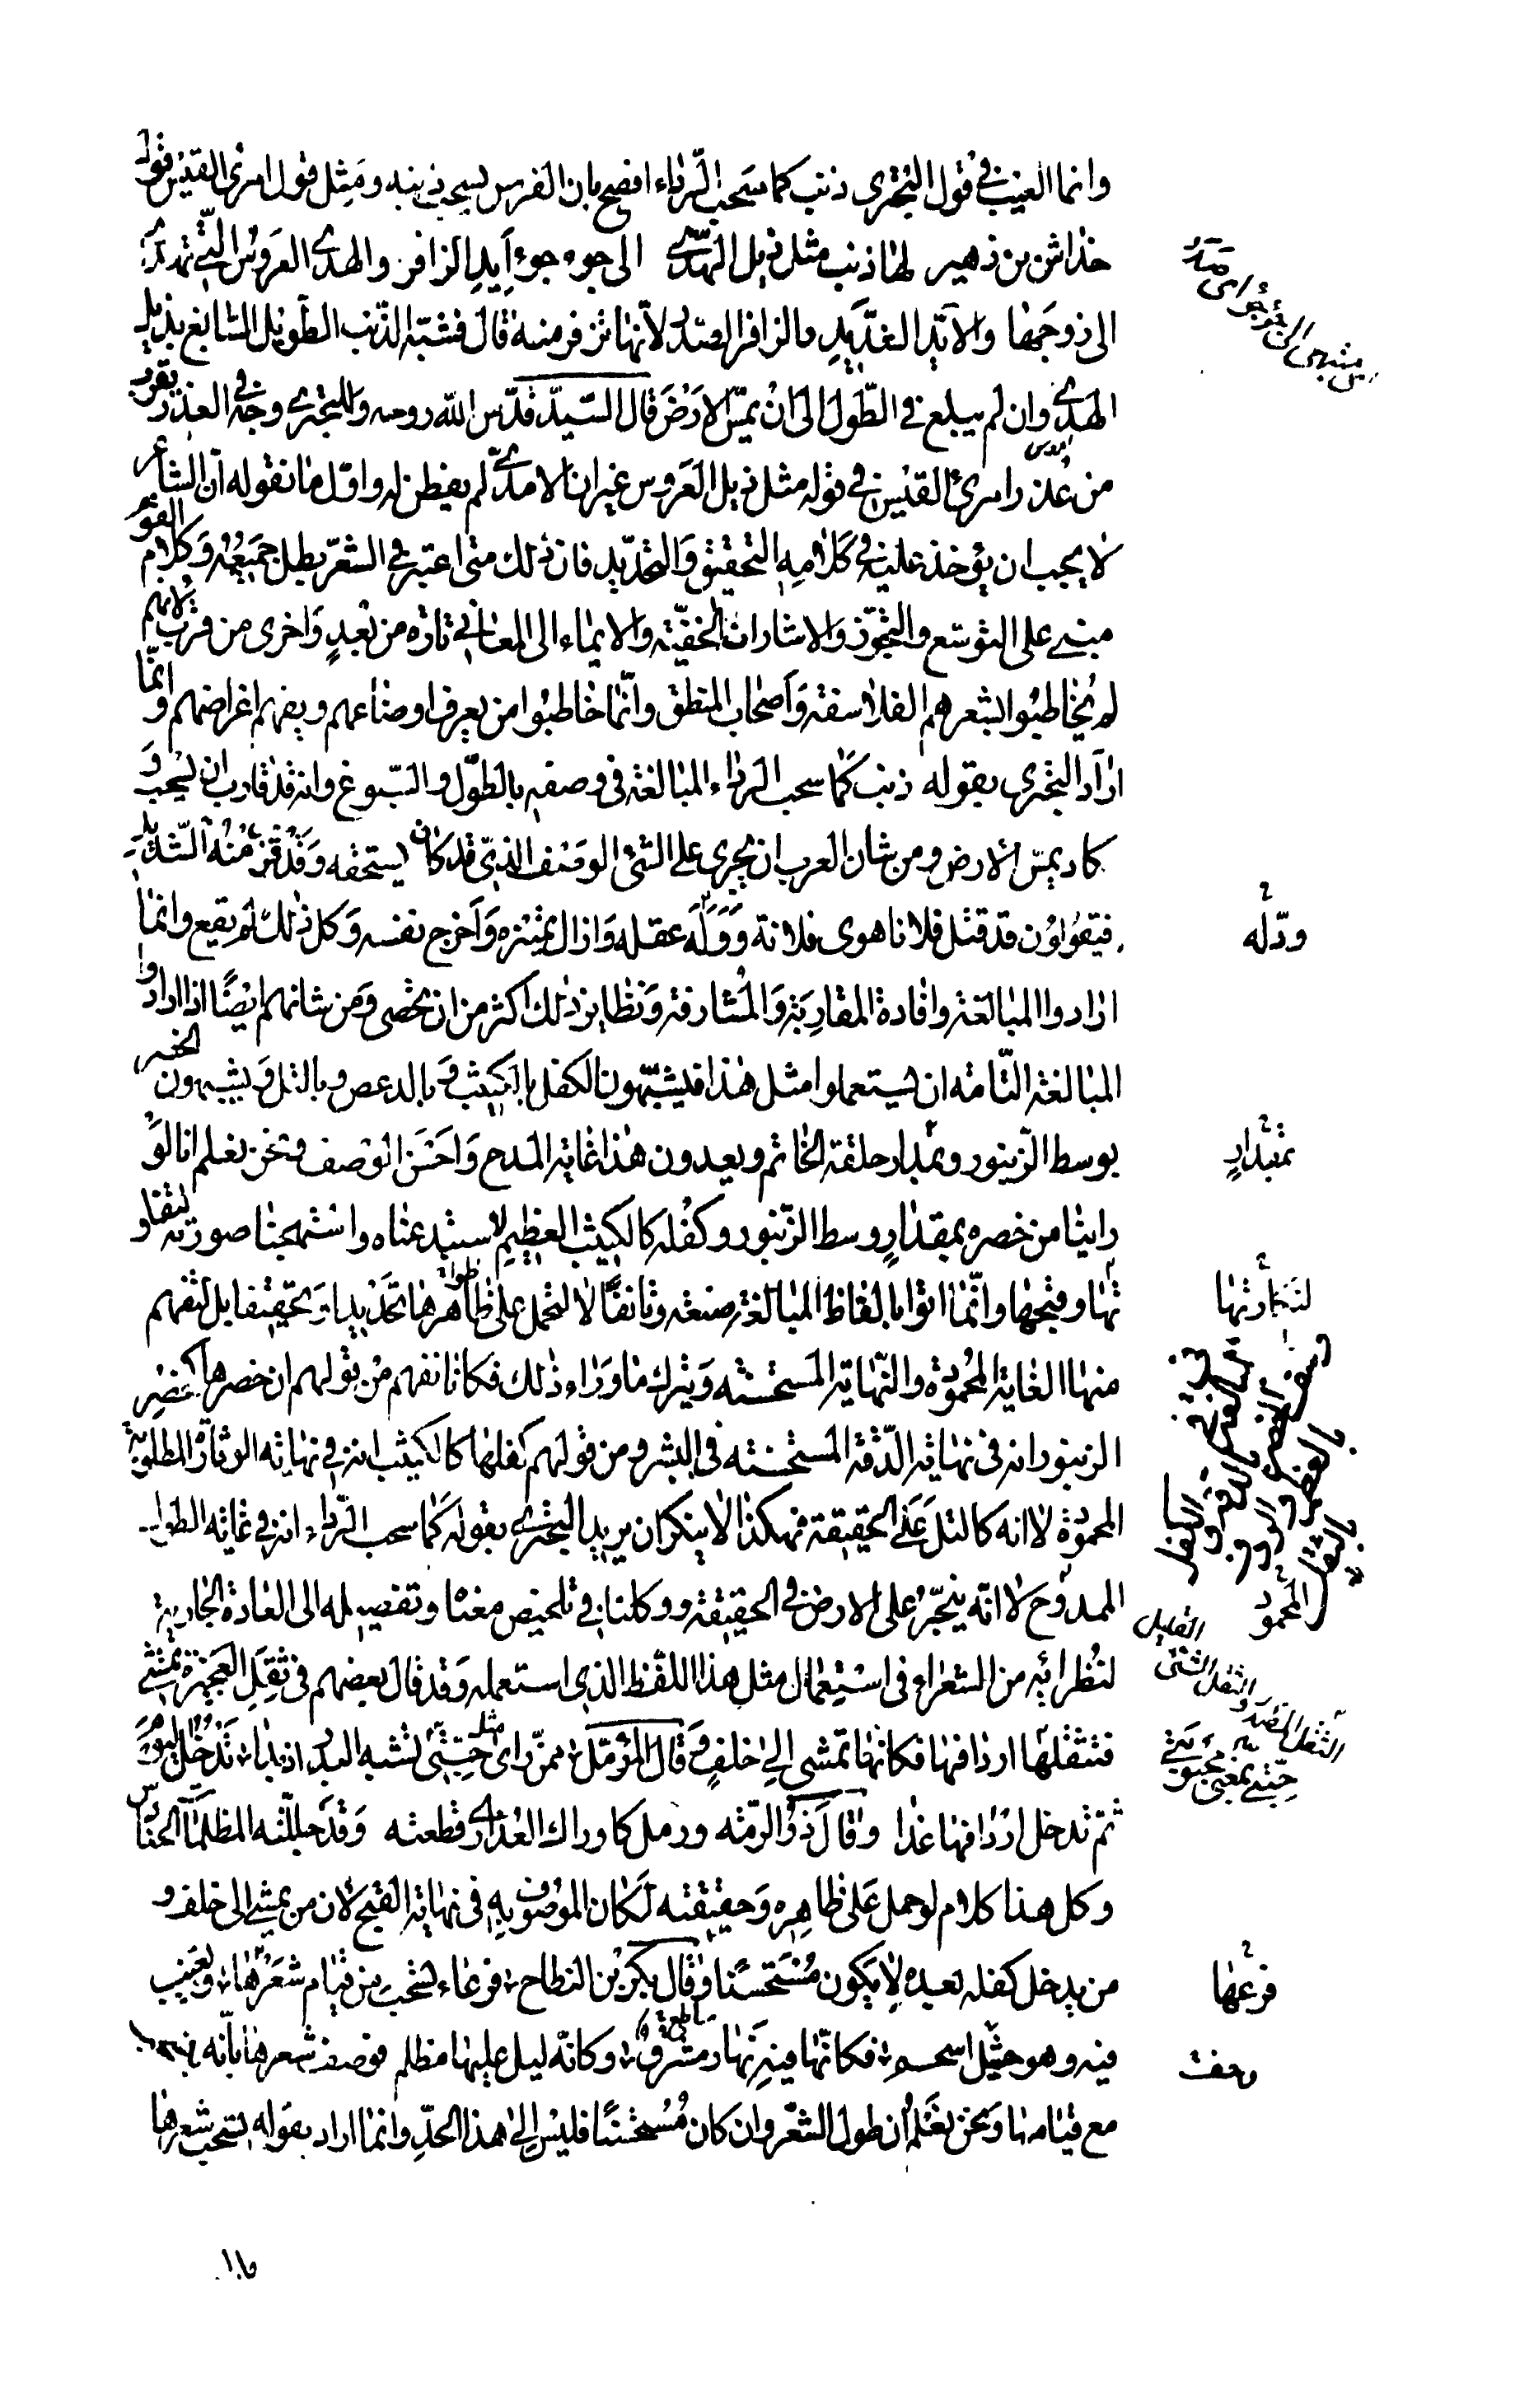 وانما العيب في قول البحترى ذنب كما سحب الرداء افصح بان الفرس يسحب ذنبه ومثل قول امرئ القيس قول
خداش بن زهير لها ذنب مثل ذيل الهدى الى جوجوء ايد الزافر والهدى العروس التى تهدى
الى زوجها والايد الشديد والزافر الصدر لانها تزفر منه قال فشبه الذنب الطويل السابغ بذيل
الهدى وان لم يبلغ في الطول الى ان يمس الارض قال السيد قدس الله روحه وللبحترى وجه في العذر يقرب
من عذر امرئ القيس في قوله مثل ذيل العروس غير ان الامدى لم يفطن له واول ما نقوله ان الشاعر
لا يجب ان يؤخذ عليه في كلامه التحقيق والتحديد فان ذلك متى اعتبر في الشعر بطل جميعه وكلام القوم
مبنى على التوسع والتجوز والاشارات الخفية والايماء الى المعانى تارة من بعد واخرى من قرب لانهم
لم يخاطبوا بشعرهم الفلاسفة واصحاب المنطق وانما خاطبوا من يعرف اوضاعهم ويفهم اغراضهم وانما
اراد البحترى بقوله ذنب كما سحب الرداء المبالغة فى وصفه بالطول والسبوغ وانه قد قارب ان يسحب و
كاد يمس الارض ومن شان العرب ان يجرى على الشئ الوصف الذى قد كان يستحقه وقد قرب منه الشديد
فيقولون قد قتل فلانا هوى فلانة ووله عقله وازال تميزه واخرج نفسه وكل ذلك لم يقع وانما
ارادوا المبالغة وافادة المقاربة والمشارفة ونظاير ذلك اكثر من ان تحصى ومن شانهم ايضا اذا ارادوا
المبالغة التامة ان يستعملوا مثل هذا فيشبهون الكفل بالكثيب وبالدعص وبالتل ويشبهون الخصر
بوسط الزنبور وبمدار حلقة الخاتم ويعدون هذا غاية المدح واحسن الوصف ونحن نعلم انا لو
راينا من خصره بمقدار وسط الزنبور وكفله كالكثيب العظيم لاستبدعناه واستهجنا صورته لنفاو
تها وقبحها وانما اتوا بالفاظ المبالغة صنعة وتانقا لا لتحمل على ظواهرها تحديدا وتحقيقا بل لتفهم
منها الغاية المحمودة والنهاية المستحسنة ويترك ما وراء ذلك فكانا نفهم من قولهم ان خصرها كخصر
الزنبور انه فى نهاية الدقة المستحسنة فى البشر ومن قولهم كفلها كالكثيب انه فى نهاية الوثارة المطلوبة
المحمودة لا انه كالتل على الحقيقة فهكذا لا ينكر ان يريد البحترى بقوله كما سحب الرداء انه فى غاية الطول
الممدوح لا انه ينجر على الارض فى الحقيقة ووكلنا فى تلخيص معناه وتفصيله الى العادة الجارية
لنظرائه من الشعراء فى استعمال مثل هذا اللفظ الذى استعمله وقد قال بعضهم فى ثقل العجيزة تمشى
فتثقلها اردافها فكانها تمشى الى خلف وقال المؤمل ممن راى مثل حبتى تشبه البدر اذ بدا تدخل اليوم
ثم تدخل اردافها غدا وقال ذو الرمة ورمل كاوراك العذارى قطعته وقد جللته المظلمات الحنادس
وكل هذا كلام لو حمل على ظاهره وحقيقته لكان الموصوف به فى نهاية القبح لان من يمشى الى خلف و
من يدخل كفله بعده لا يكون مستحسنا وقال بكر بن النطاح فرعاء تسحب من قيام شعرها وتغيب
فيه وهو جثل اسحم فكانها فيه نهار مشرق ساطع وكانه ليل عليها مظلم فوصف شعرها بانه
مع قيامها ونحن نعلم ان طول الشعر وان كان مستحسنا فليس الى هذا الحد وانما اراد بقوله تسحب شعرها
ودله
بمقدار
لنكارتها
المحمود
الثقل المصدر و
الثقل الشئ
الثقيل
حبتى بمعنى محبوبتى
فرعها
وحف